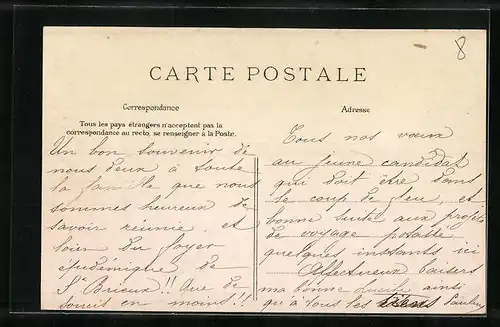 8
CARTE POSTALE
Correspondance
Adresse
Tous les pays étrangers n'acceptent pas la
correspondance au recto, se renseigner à la Poste.
Un bon souvenir de
nous deux à toute
la famille que nous
sommes heureux de
savoir réunie, et
loin du foyer
épidémique de
St Brieux!! Que de
soucis en moins!!
Tous nos vœux
au jeune candidat
qui doit être dans
le coup de feu, et
bonne suite aux projets
de voyage
quelques instants ici
Affectueux baisers
ma bonne ainsi
qu'à tous les tiens